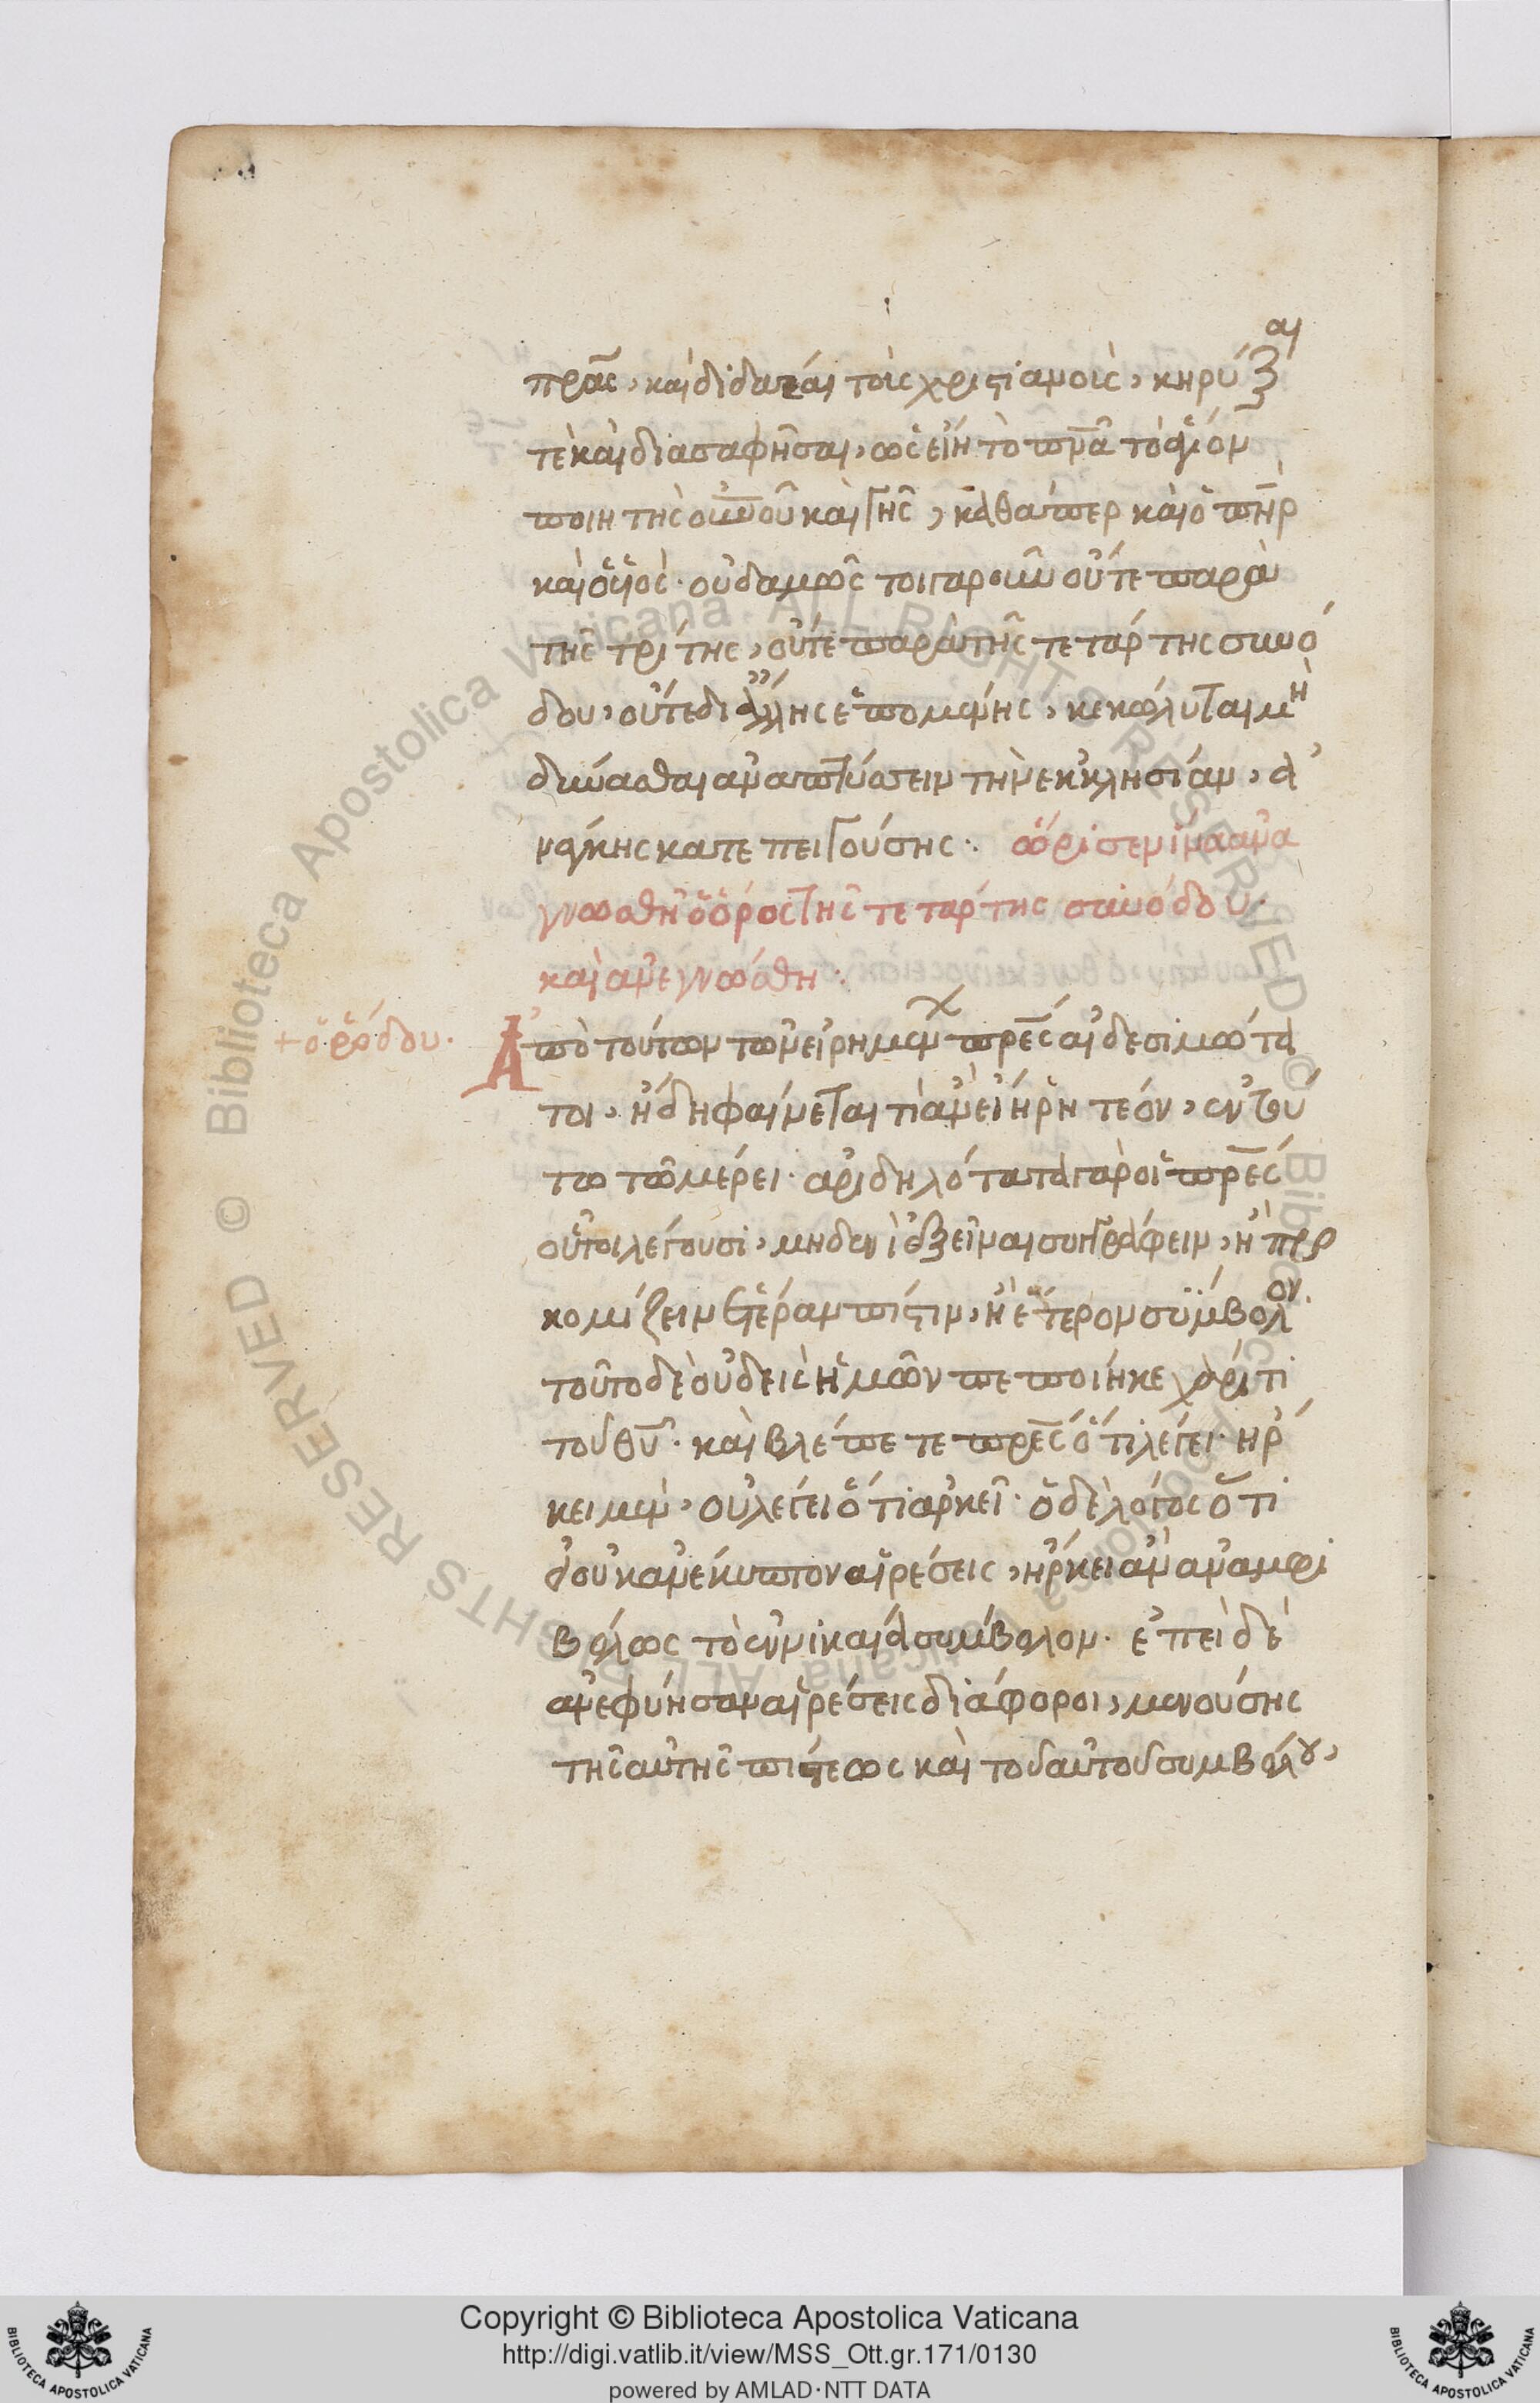 πρᾶς, καὶ διδάξαι τοῖς χριστιανοῖς, κηρύξαι
τὲ καὶ διασαφῆσαι, ὡς εἴη τὸ πνᾶ τὸ ἅγιον
ποιητὴς οὐνοῦ καὶ γῆς, καθάπερ καὶ ὁ πὴρ
καὶ ὁ υἱός. οὐδαμῶς τοιγαροῦν οὔτε παρὰ
τῆς τρίτης, οὔτε παρὰ τῆς τετάρτης συνό
δου, οὔτε δι ἄλλης ἑπομένης, κεκώλυται μὴ
δύνασθαι ἀναπτύσσειν τὴν ἐκκλησίαν, ἀ
νάγκης κατεπειγούσης: ὥρισεν ἵνα ἀνα
γνωσθῆ ὁ ὅρος τῆς τετάρτης συνόδου.
καὶ ἀνεγνώσθη:
+ ὁ ῥόδου.
Ἀπὸ τούτων τῶν εἰρημένων πρες αἰδεσιμώτα
τοι, ἤδη φαίνεται τί ἂν εἴη ῥητέον, ἐν τού
τω τῶ μέρει. ἀριδηλότατα γὰρ οἱ πρες
οὗτοι λέγουσι, μηδενὶ ἐξεῖναι συγγράφειν, ἢ προ
κομίζειν ἑτέραν πίστιν, ἢ ἕτερον σύμβολον.
τοῦτο δὲ οὐδεὶς ἡμῶν πεποίηκε χάριτι
τοῦ θυ. καὶ βλέπετε πρες ὅτι λέγει. ἤρ
κει μὲν, οὐ λέγει ὅτι ἀρκεῖ. ὁ δὲ λόγος ὅτι
εἰ οὐκ ἀνέκυπτον αἱρέσεις, ἤρκει ἂν ἀναμφι
βόλως τὸ ἐν νικαία σύμβολον. ἐπεὶ δὲ
ἀνεφύησαν αἱρέσεις διάφοροι, μενούσης
τῆς αὐτῆς πίστεως καὶ τοῦ αὐτοῦ συμβόλου,
Copyright © Biblioteca Apostolica Vaticana
http://digi.vatlib.it/view/MSS_Ott.gr.171/0130
powered by AMLAD·NTT DATA
BIBLIOTECA APOSTOLICA VATICANA
BIBLIOTECA APOSTOLICA VATICANA